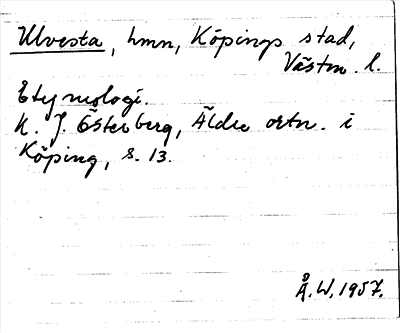 Ulvesta, hmn, Köpings stad,
Västm. l.
Etymologi.
K. J. Österberg, Äldre ortn. i
Köping, s. 13.
Å. W. 1957.